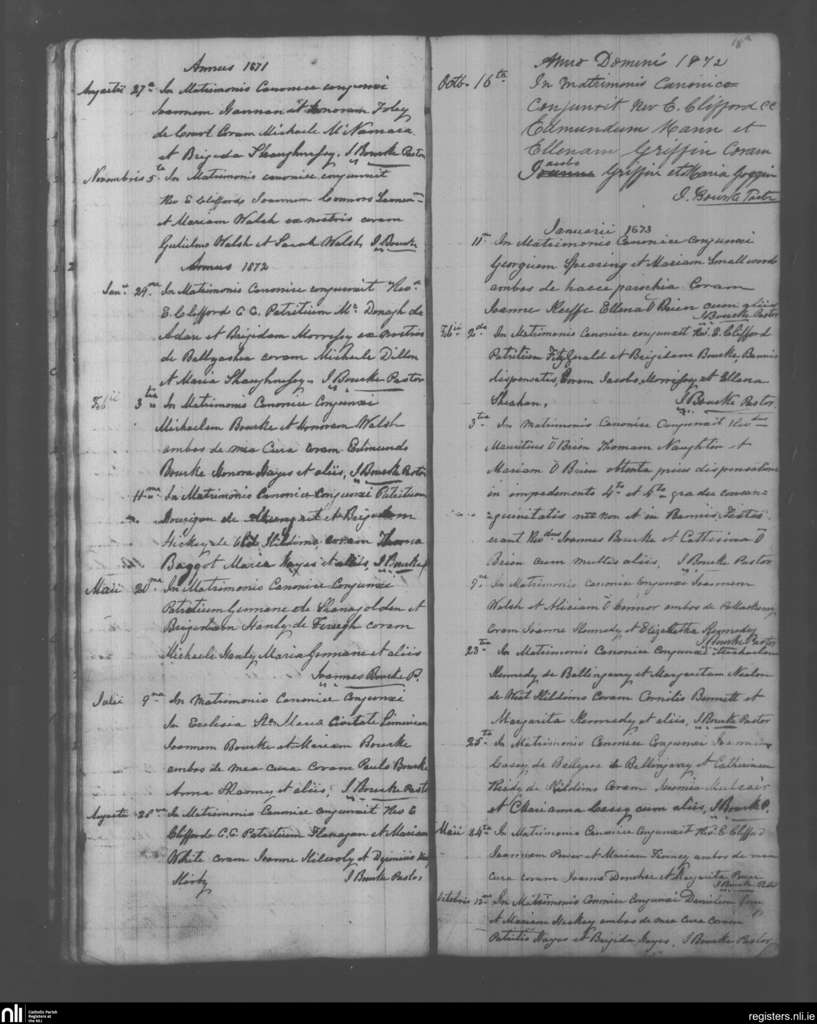 Annus 1871
Augustii 27a In Matrimonio Canonice conjunxi
Joannem Hannan et Honoram Foley
de Court Coram Michaele McNamara
et Brigeda Shaughnessy. J Bourke Pastor
Novembris 5ta In Matrimonio canonice conjunxit
Rev E Clifford Joannem Connors
et Mariam Walsh ex nostris coram
Gulielmo Walsh et Sarah Walsh, J Bourke
Annus 1872
Jan. 29na In Matrimonio Canonice conjunxit Rev.
E. Clifford C C. Patritium Mc Donagh de
Adare et Brigidam Morrissy ex nostris
de Ballyashea coram Michaele Dillon
et Maria Shaughnessy. J Bourke Pastor
Febii 3tia In Matrimonio Canonice Conjunxi
Michaelem Bourke et Honoram Walsh
ambos de mea Cura coram Edmundo
Bourke Honora Hayes et aliis, J Bourke Pastor
11ma In Matrimonio Canonice Conjunxi Patritium
de et Brigidam
Hickey de Kildimo, coram Thoma
Baggot Maria Hayes et aliis, J Bourke P
Maii 20ma In Matrimonio Canonice Conjunxi
Patritium Gernane de Shanagolden et
Brigidam Hanly de Ferregh coram
Michaele Hanly Maria Gernane et aliis
Joannes Bourke P.
Julii 9na In Matrimonio Canonice Conjunxi
In Ecclesia Stae Maria Civitate
Joannem Bourke et Mariam Bourke
ambos de mea cura coram Paulo Bourke
Anna et aliis, J Bourke Pastor
Augusti In Matrimonio Canonice conjunxit Rev E
Clifford C.C. Patritium Flanagan et Mariam
White coram Joanne et
Kirby J Bourke Pastor
18a
Anno Domini 1872
Octb. 16ta In Matrimonio Canonice
Conjunxit Rev E. Clifford CC
Edmundum Hann et
Ellenam Griffin Coram
Jacobo Griffin et Maria Goggin
J. Bourke Pastor
Januarii 1873
11a In Matrimonio Canonice conjunxi
Georgium Spearing et Mariam Smallwood
ambos de hacce parochia Coram
Joanne Keeffe Ellena O Brien cum aliis
J Bourke Pastor
Febii 2da In Matrimonio Canonice conjunxit Rev. E. Clifford
Patritium FitzGerald et Brigidam Bourke, Bannis
dispensatis, Coram Jacobo Morrissy et Ellena
Sheahan, J Bourke Pastor.
3tia In Matrimonio Canonice Conjunxit Revdus
Mauritius O Brien Thomam Naughton et
Mariam O Brien obtenta prius dispensatione
in impedimento 4to et 4to gradu consan=
=guinitatis nec non et in Bannis, Testes
erant Revdus Joannes Bourke et Catherina O
Brien cum multis aliis, J Bourke Pastor
9na In Matrimonio Canonice Conjunxi Joannem
Walsh et Aliciam O Connor ambos de Pallaskenry
Coram Joanne Kennedy et Elizabetha Kennedy
J Bourke Pastor
23tia In Matrimonio Canonice Conjunxi
Kennedy de Ballingarry et Margaritam Neilan
de West Kildimo Coram Cornelio Bennett et
Margarita Kennedy et aliis, J Bourke Pastor
25ta In Matrimonio Canonice Conjunxi
Casey de Ballingarry et Catherinam
de Kildimo Coram
et Marianna Casey cum aliis, J Bourke P.
Maii 24ta In Matrimonio Canonice Conjunxit Rev. E. Clifford
Joannem Power et Mariam ambos de mea
Cura coram Joanne Donohoe et Margarita Power
J Bourke Pastor
Octobris 12ma In Matrimonio Canonice Conjunxi Danielem
et Mariam Hickey ambos de mea Cura coram
Patritio Hayes et Brigida Hayes, J Bourke Pastor
nli Catholic Parish
Registers at
the NLI
registers.nli.ie